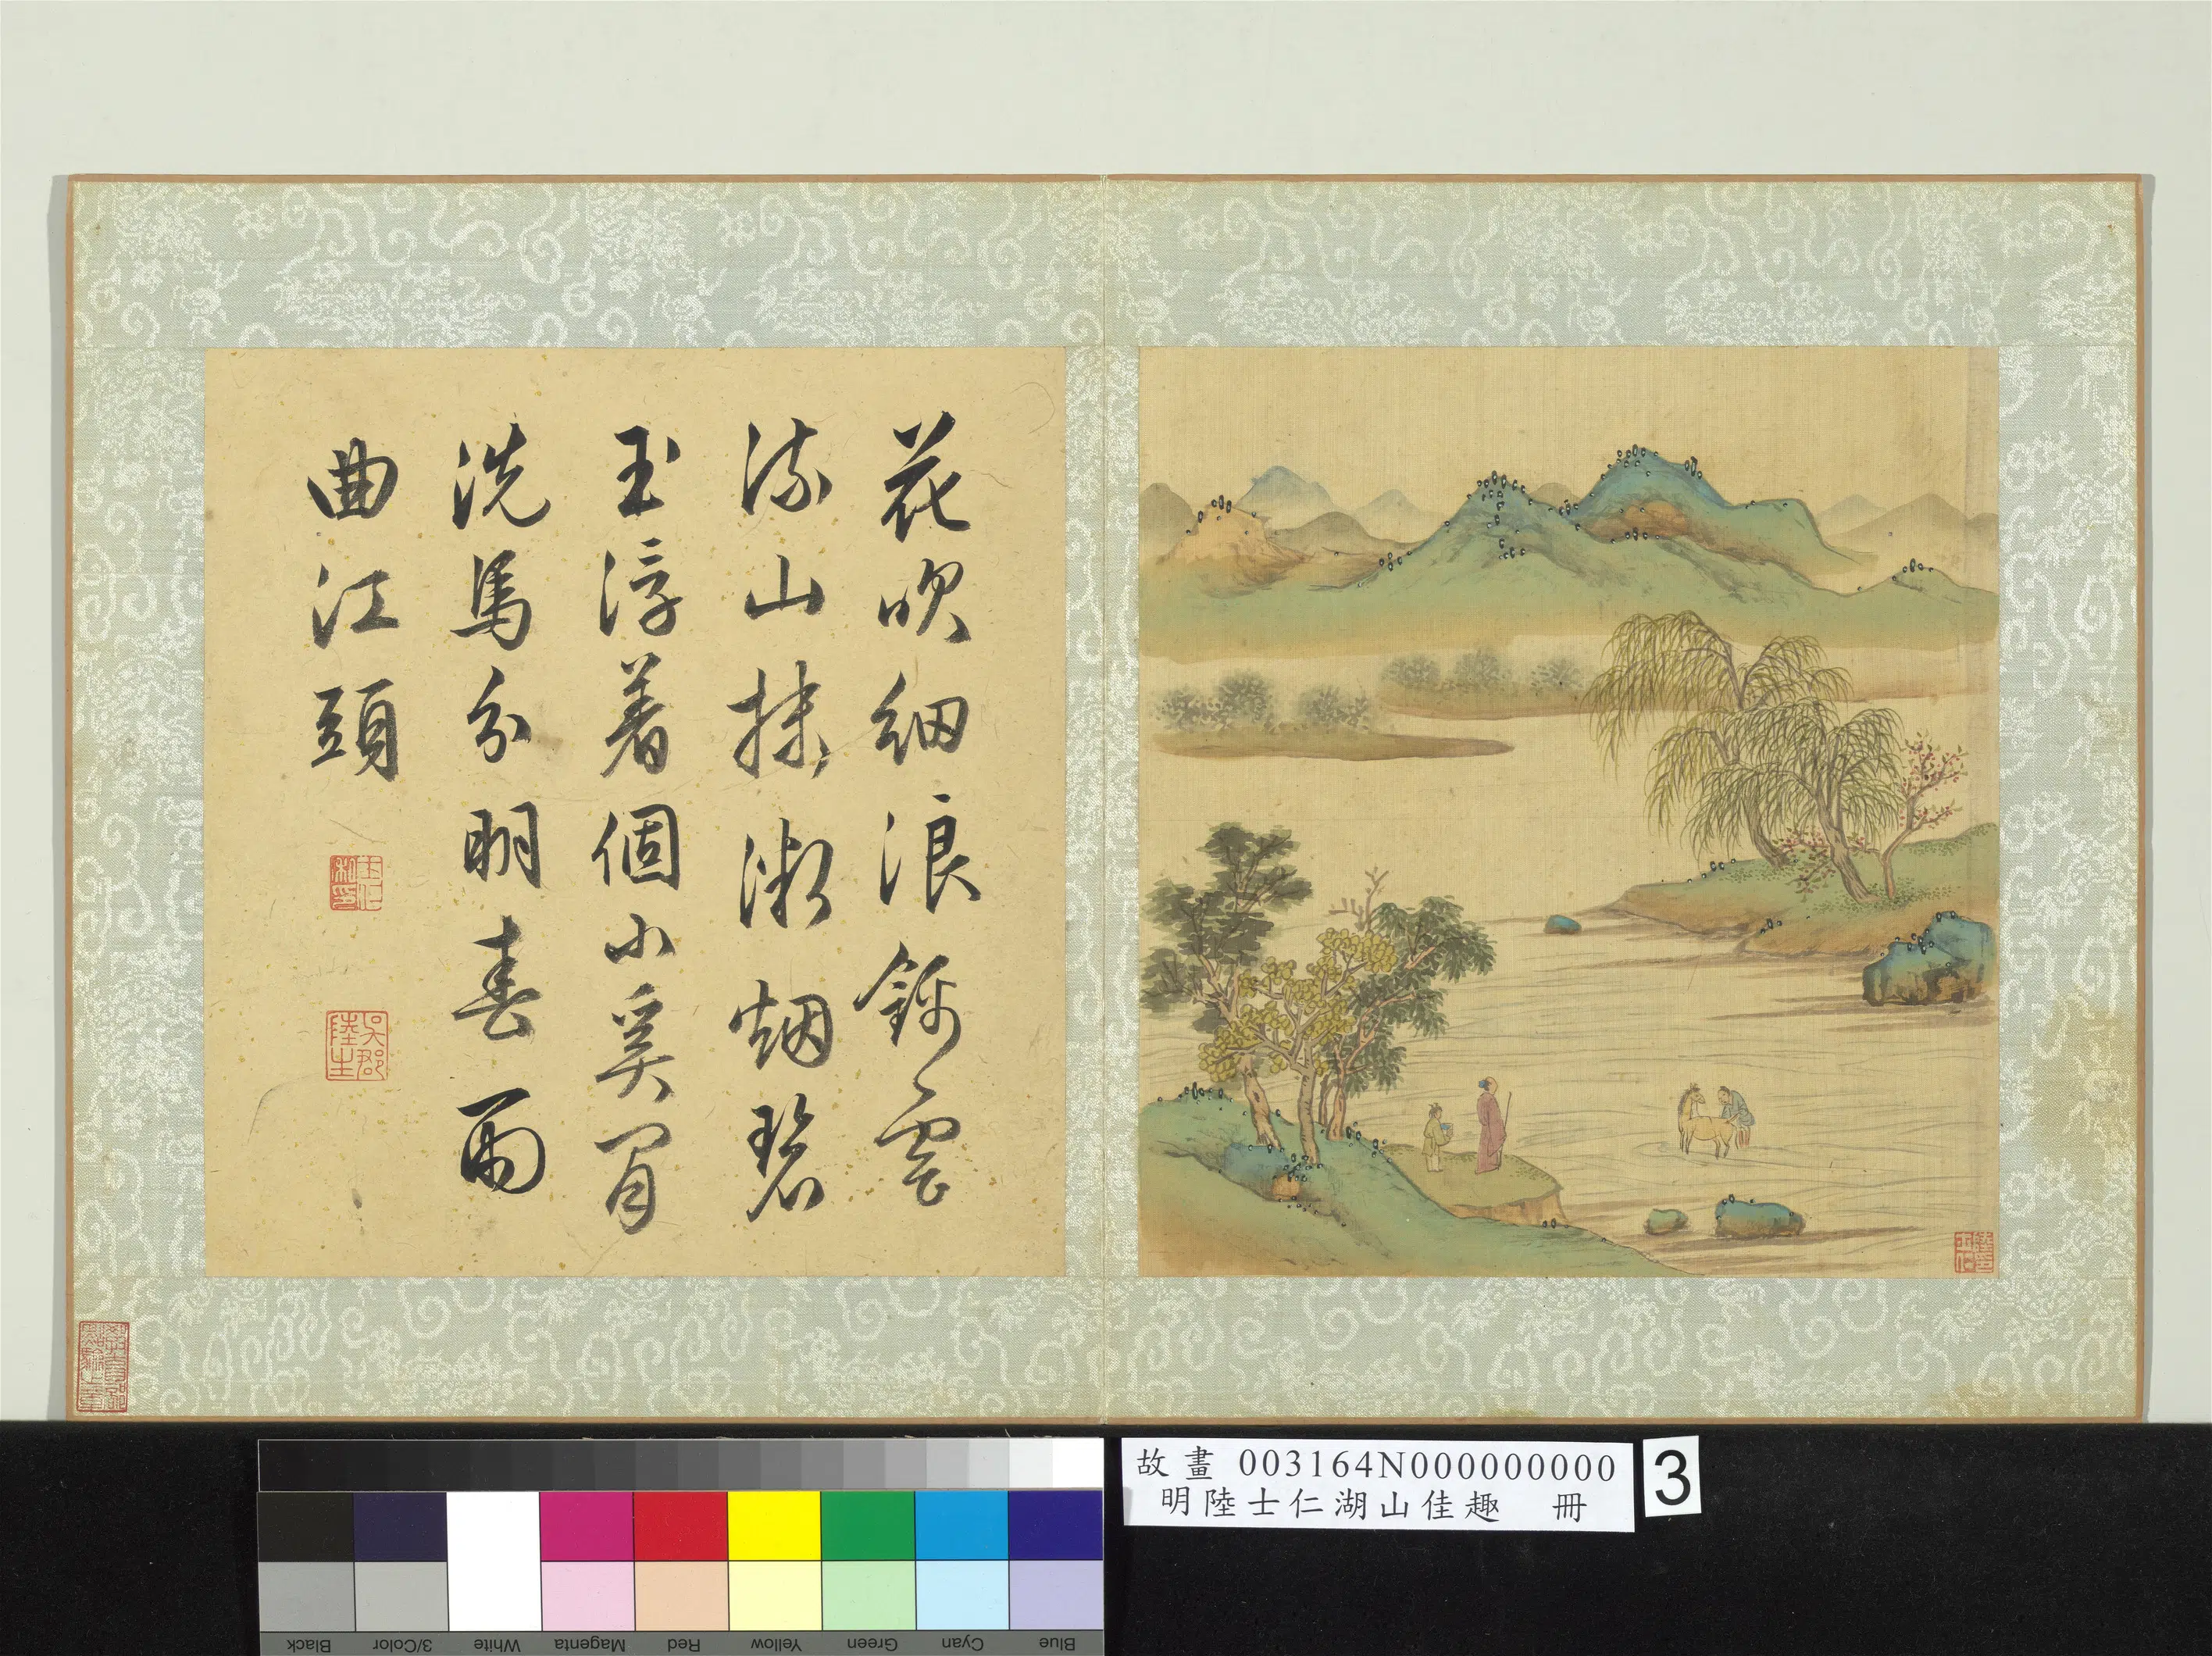 花吹細浪錦雲
流山抹微烟碧
玉浮着個小奚閒
洗馬分明春雨
曲江頭
士仁私印
吳郡陸生
故畫 003164N000000000
明陸士仁湖山佳趣 冊
3
Blue Cyan Green Yellow Red Magenta White 3/Color Black